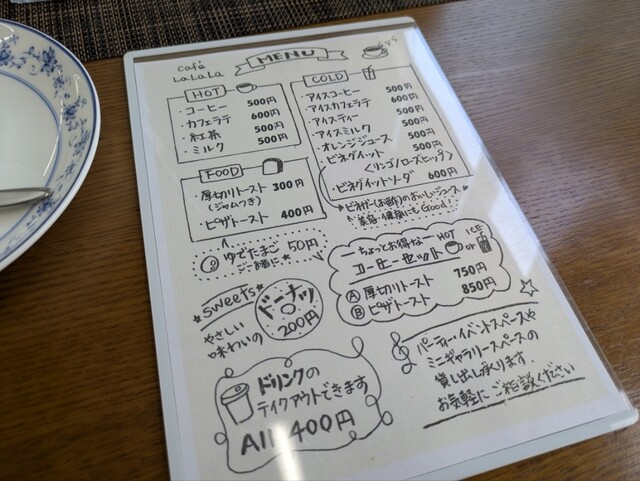 Café
LaLaLa
MENU
HOT
・コーヒー 500円
・カフェラテ 600円
・紅茶 500円
・ミルク 500円
COLD
・アイスコーヒー 500円
・アイスカフェラテ 600円
・アイスティー 500円
・アイスミルク 500円
・オレンジジュース 500円
・ビネグイット 500円
〈リンゴ/ローズヒップ〉
・ビネグイットソーダ 600円
ビネガー(お酢)のおいしいジュース
美容・健康にもGood!
FOOD
・厚切りトースト 300円
(ジャムつき)
・ピザトースト 400円
ゆでたまご 50円
ご一緒に
ちょっとお得な
コーヒーセット
HOT or ICE
Ⓐ 厚切りトースト 750円
Ⓑ ピザトースト 850円
sweets
やさしい
味わいの
ドーナッツ
200円
ドリンクの
テイクアウトできます
All 400円
パーティー・イベントスペースや
ミニギャラリースペースの
貸し出し承ります.
お気軽にご相談ください